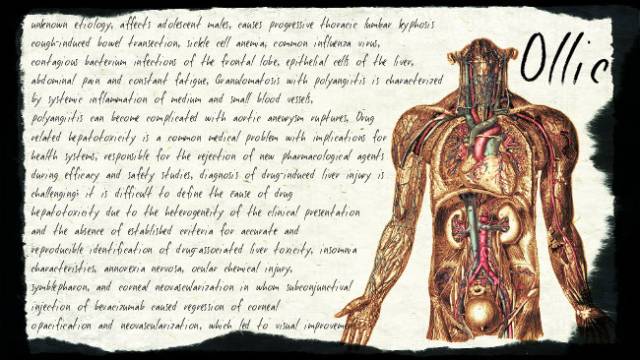 unknown etiology, affects adolescent males, causes progressive thoracic lumbar kyphosis
cough-induced bowel transection, sickle cell anemia, common influenza virus,
contagious bacterium infections of the frontal lobe, epithelial cells of the liver,
abdominal pain and constant fatigue, Granulomatosis with polyangiitis is characterized
by systemic inflammation of medium and small blood vessels,
polyangiitis can become complicated with aortic aneurysm ruptures, Drug
related hepatotoxicity is a common medical problem with implications for
health systems, responsible for the rejection of new pharmacological agents
during efficacy and safety studies, diagnosis of drug-induced liver injury is
challenging: it is difficult to define the cause of drug
hepatotoxicity due to the heterogeneity of the clinical presentation
and the absence of established criteria for accurate and
reproducible identification of drug-associated liver toxicity, insomnia
characteristics, annorexia nervosa, ocular chemical injury,
symblepharon, and corneal neovascularization in whom subconjunctival
injection of beracizumab caused regression of corneal
opacification and neovascularization, which led to visual improvement
Ollie